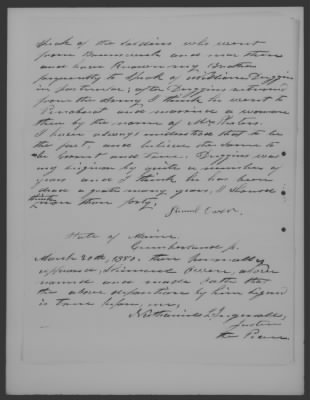 speak of the soldiers who went
from Brunswick and
and have known my brother
frequently to speak of William Duggins
in particular; after Duggins returned
from the Army I think he went to
Penobscot and married a woman
there by the name of Mrs
I have always understood that to be
the fact, and believe the same to
be Correct and True. Duggins was
my by quite a number of
years and I think he has been
dead a quite many years, I should
think
more than forty.
Samuel
State of Maine.
Cumberland ss.
March 20th, 1850. then personally
appeared Samuel above
named and made oath that
the above deposition by him signed
is true before me,
Nathaniel L. Ingersoll,
Justice
the Peace